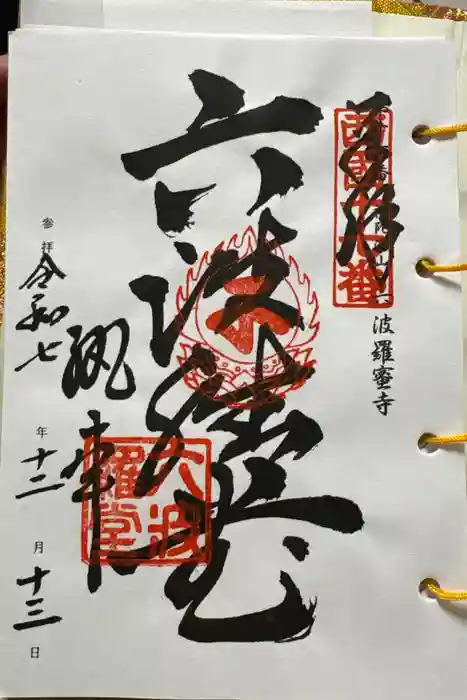 奉拝
西国十七番
波羅蜜寺
六波羅堂
六波
羅堂
参拝 令和七年十二月十三日